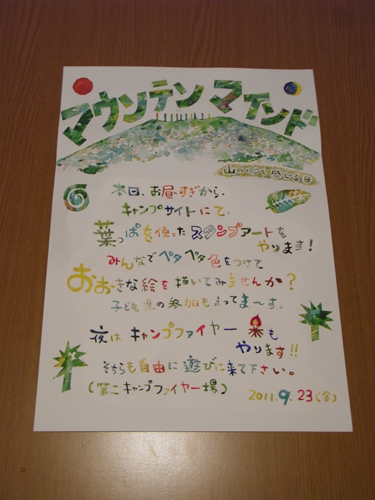 マウンテンマインド
山のいのち感じる日
本日、お昼すぎから、
キャンプサイトにて、
葉っぱを使ったスタンプアートを
やります!
みんなでペタペタ色をつけて
おおきな絵を描いてみませんか?
子ども達の参加もまってまーす。
夜はキャンプファイヤーも
やります!!
そちらも自由に遊びに来て下さい。
(第二キャンプファイヤー場)
2011.9.23(金)